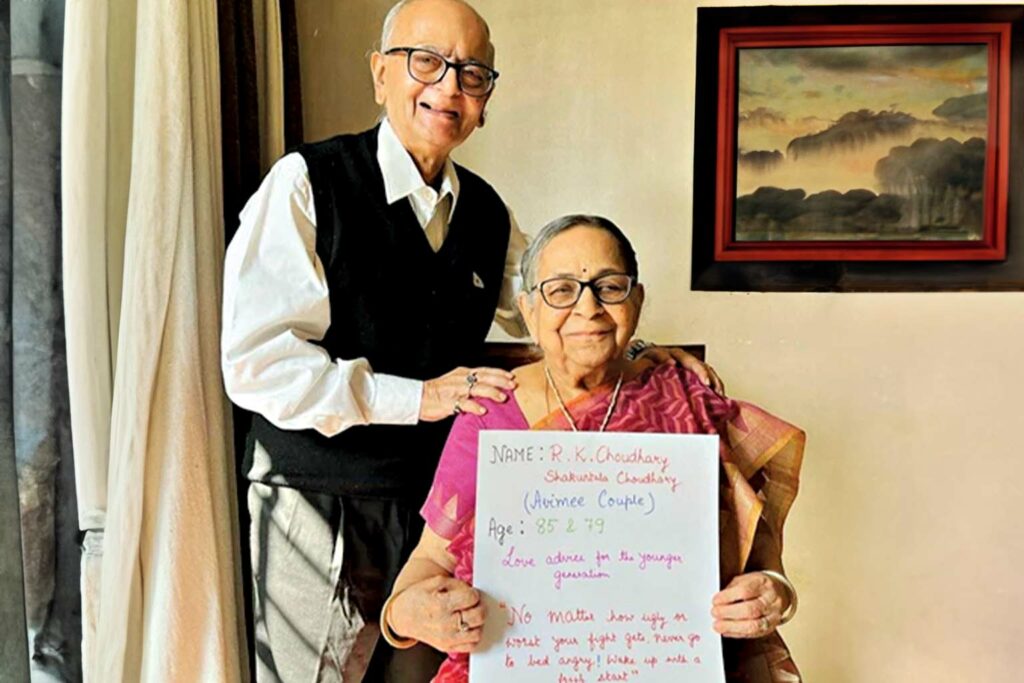 NAME: R.K. Choudhary
Shakuntala Choudhary
(Avimee Couple)
Age: 85 & 79
Love advice for the younger
generation
"No matter how ugly or
worst your fight gets, never go
to bed angry! Wake up with a
fresh start"